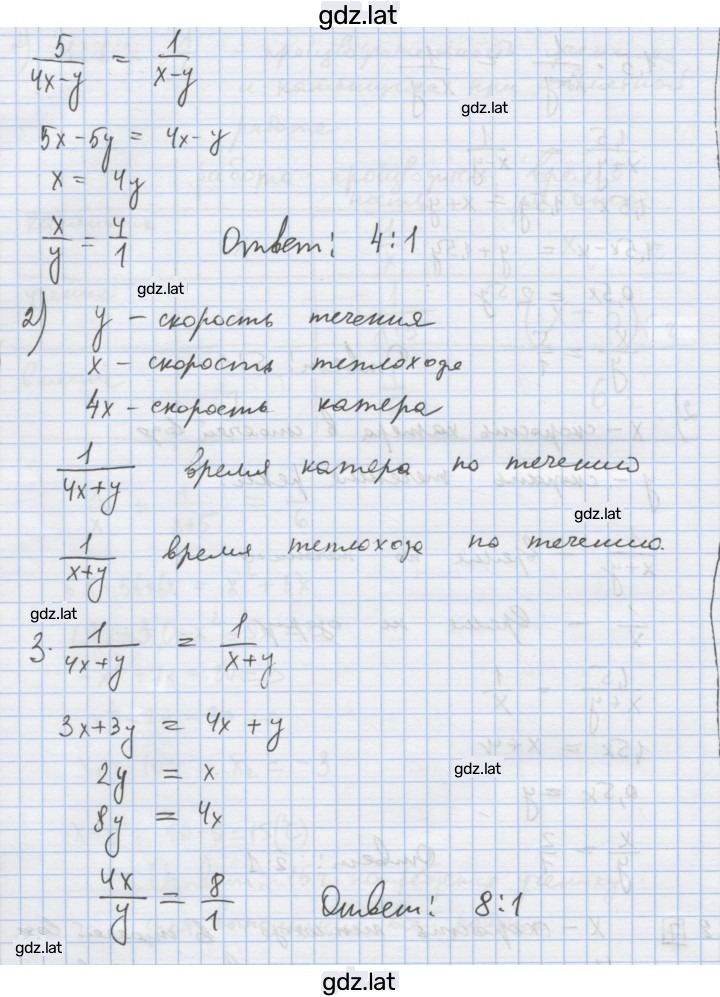 gdz.lat
5/(4x-y) = 1/(x-y)
gdz.lat
5x-5y = 4x-y
x = 4y
x/y = 4/1 Ответ: 4:1
gdz.lat
2) y - скорость течения
x - скорость теплохода
4x - скорость катера
1/(4x+y) время катера по течению
gdz.lat
1/(x+y) время теплохода по течению.
gdz.lat
3·1/(4x+y) = 1/(x+y)
3x+3y = 4x+y
2y = x
gdz.lat
8y = 4x
4x/y = 8/1 Ответ: 8:1
gdz.lat
gdz.lat